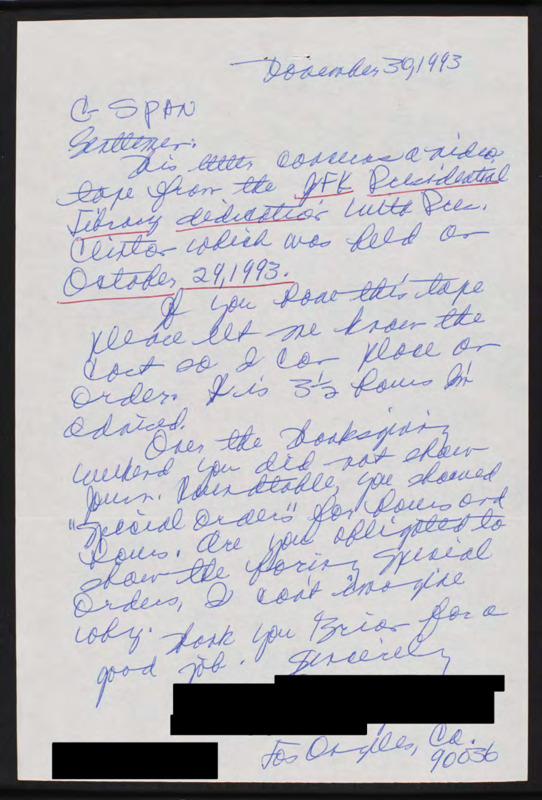 November 30, 1993
C-SPAN
Gentlemen:
This letter concerns a video
tape from the JFK Presidential
Library dedication with Pres.
Clinton which was held on
October 29, 1993.
If you have this tape
please let me know the
cost so I can place an
order. It is 3½ hours I'm
adviced.
Over the Thanksgiving
weekend you did not show
Journ. Roundtable, you showed
"Special Orders" for hours and
hours. Are you obligated to
show the boring Special
Orders, I can't imagine
why. Thank you Brian for a
good job. Sincerely
Los Angeles, Ca.
90036